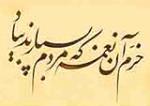 خرم آن نغمه که مردم بسپارند بیاد